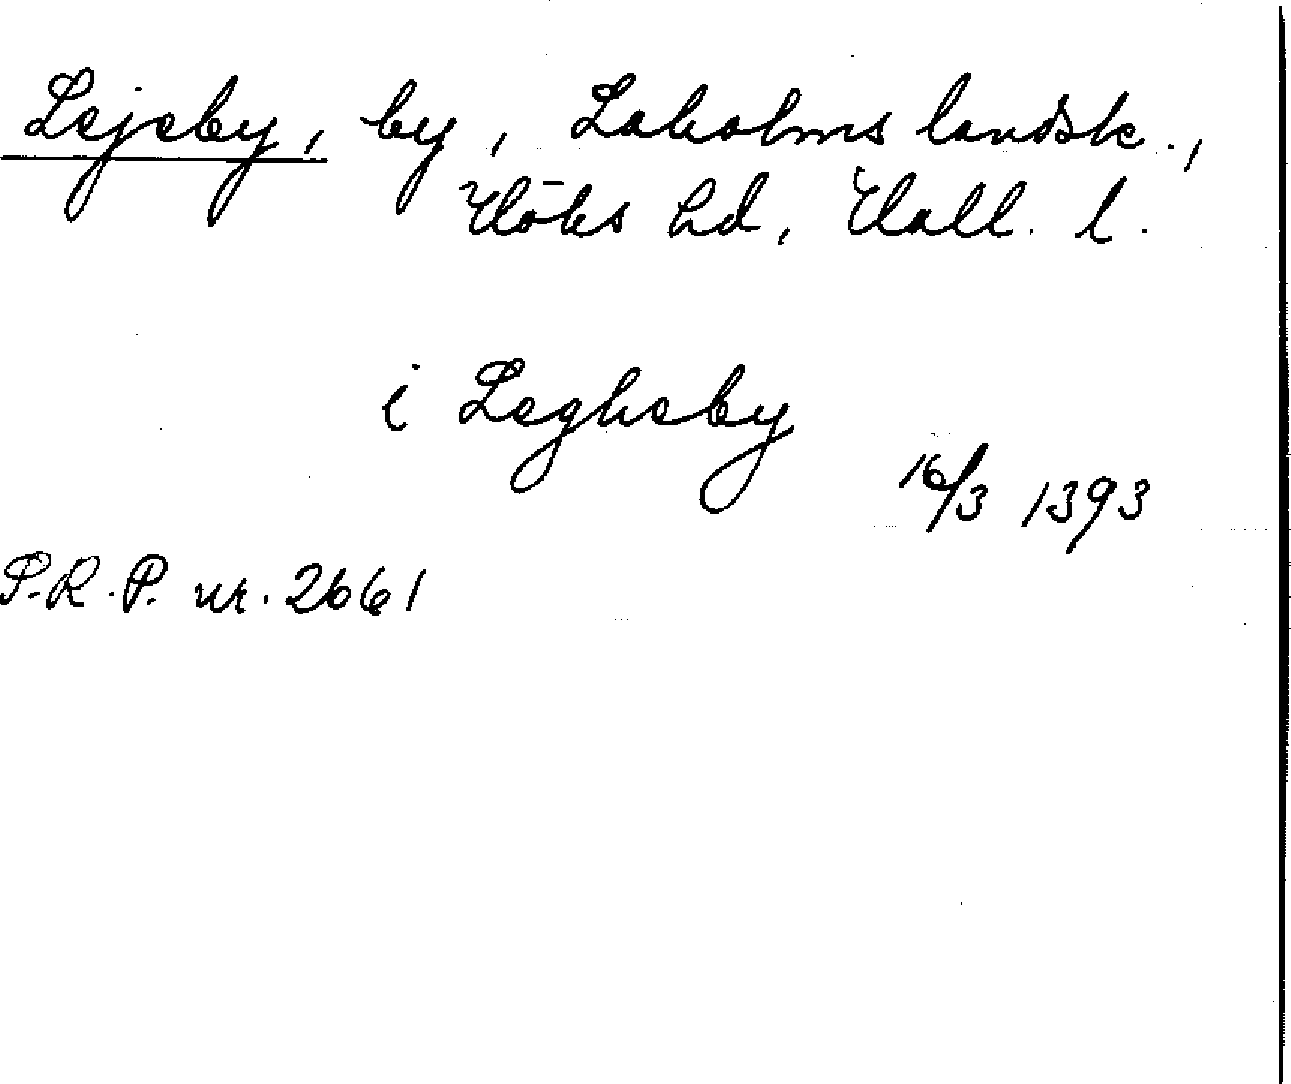 Lejeby, by, Laholms landsk.,
Höks hd, Hall. l.
i Legheby
16/3 1393
P.R.P. nr. 2661